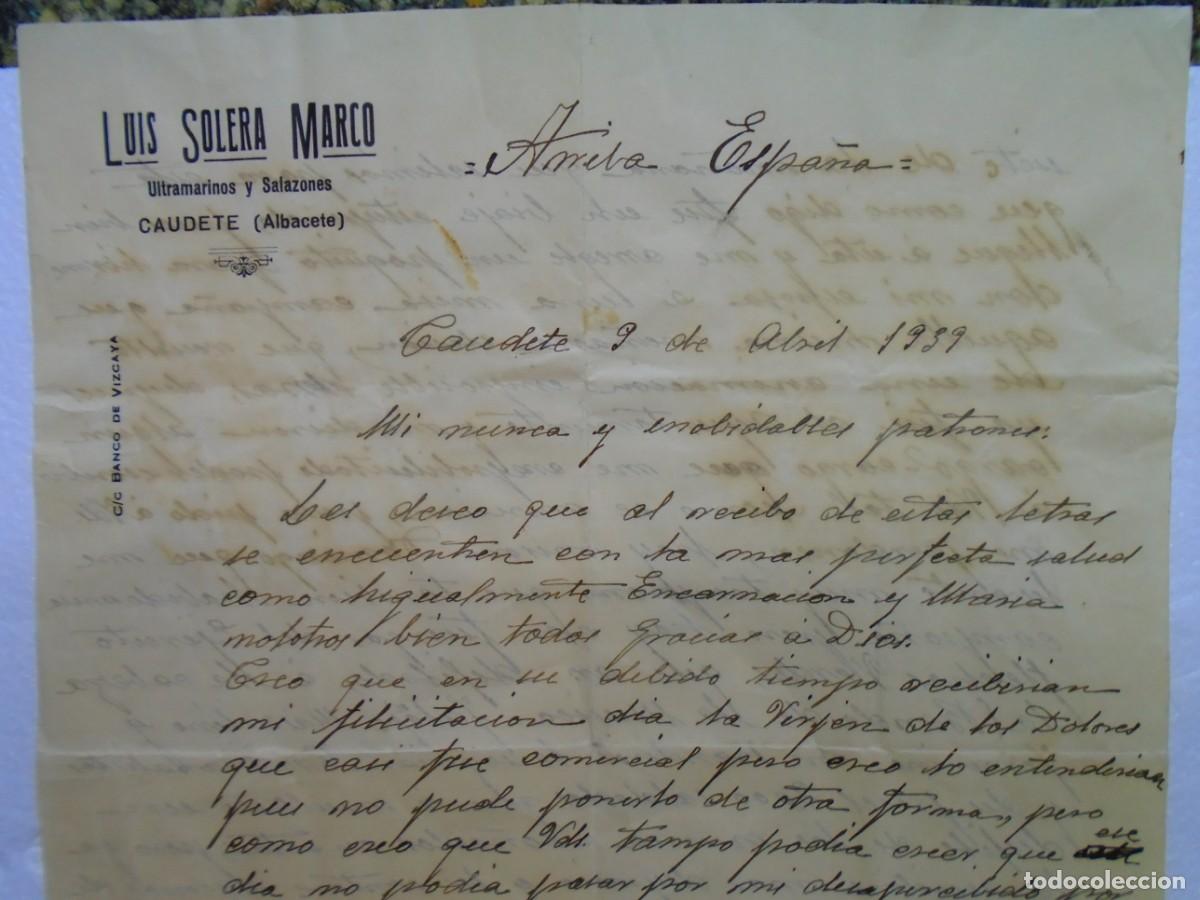 LUIS SOLERA MARCO
Ultramarinos y Salazones
CAUDETE (Albacete)
C/c BANCO DE VIZCAYA
=Arriba España=
Caudete 9 de Abril 1939
Mi nunca y inobidables patrones:
Les deseo que al recibo de estas letras
se encuentren con la mas perfecta salud
como higualmente Encarnacion y Maria
nosotros bien todos Gracias á Dios.
Creo que en su debido tiempo recibirian
mi filicitacion dia la Virjen de los Dolores
que casi fue comercial pero creo lo entenderian
pues no pude ponerlo de otra forma, pero
como creo que Vds. tampo podia creer que ese
dia no podia pasar por mi desapercibido por
todocoleccion